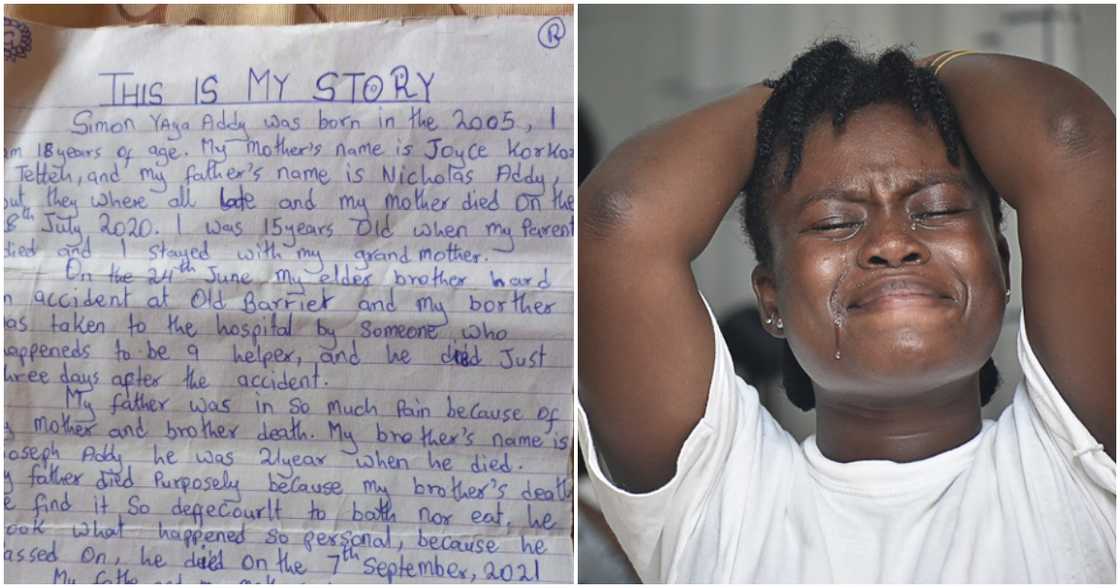 R
THIS IS MY STORY
Simon Yaya Addy was born in the 2005, I
am 18years of age. My mother's name is Joyce Korkor
Tetteh, and my father's name is Nicholas Addy,
but they where all late and my mother died on the
8th July 2020. I was 15years Old when my Parent
died and I stayed with my grand mother.
On the 24th June my elder brother hard
n accident at Old Barrier and my borther
as taken to the hospital by Someone who
happeneds to be a helper, and he died Just
three days after the accident.
My father was in So much Pain because of
y mother and brother death. My brother's name is
Joseph Addy he was 21year when he died.
y father died Purposely because my brother's death
e find it So deffecourlt to bath nor eat, he
ook what happened so personal, because he
assed On, he died on the 7th September, 2021
My fathe and my